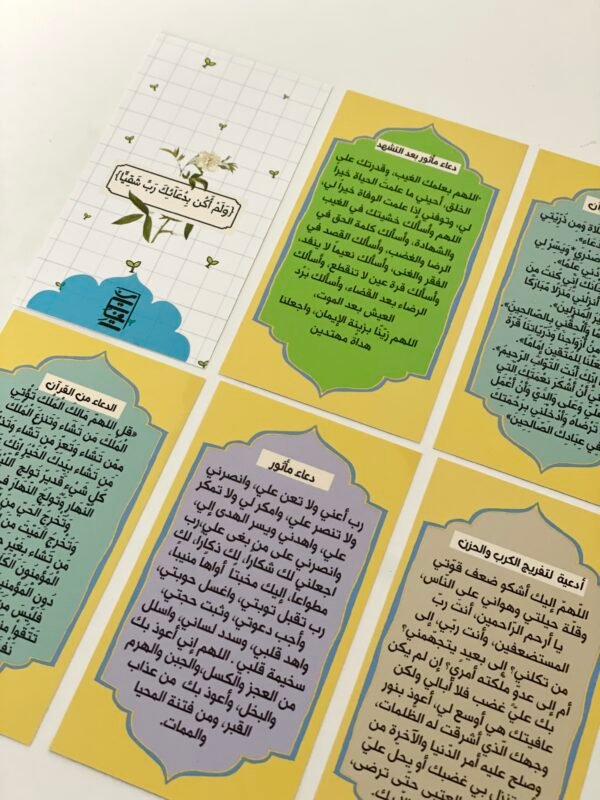 {وَلَمْ أَكُن بِدُعَائِكَ رَبِّ شَقِيًّا}
دعاء مأثور بعد التشهد
اللهم بعلمك الغيب، وقدرتك على
الخلق، أحيني ما علمت الحياة خيراً
لي، وتوفني إذا علمت الوفاة خيراً لي،
اللهم وأسألك خشيتك في الغيب
والشهادة، وأسألك كلمة الحق في
الرضا والغضب، وأسألك القصد في
الفقر والغنى، وأسألك نعيماً لا ينفد،
وأسألك قرة عين لا تنقطع، وأسألك
الرضاء بعد القضاء، وأسألك برْد
العيش بعد الموت،
اللهم زيّنا بزينة الإيمان، واجعلنا
هداة مهتدين
الدعاء من القرآن
«قل اللهم مالك الملك تؤتي
الملك من تشاء وتنزع الملك
ممن تشاء وتعز من تشاء
من تشاء بيدك الخير إنك
كل شيء قدير تولج
النهار وتولج النهار
وتخرج الحي من
وتخرج الميت من
من تشاء بغير
المؤمنون
دون المؤمنين
فليس من
دعاء مأثور
رب أعني ولا تعن علي، وانصرني
ولا تنصر علي، وامكر لي ولا تمكر
علي، واهدني ويسر الهدى إلي،
وانصرني على من بغى علي،رب
اجعلني لك شكارا، لك ذكارا، لك
مطواعا، إليك مخبتا أواها منيبا،
رب تقبل توبتي، واغسل حوبتي،
وأجب دعوتي، وثبت حجتي،
واهد قلبي، وسدد لساني، واسلل
سخيمة قلبي . اللهم إني أعوذ بك
من العجز والكسل،والجبن والهرم
والبخل، وأعوذ بك من عذاب
القبر، ومن فتنة المحيا
والممات.
أدعية لتفريج الكرب والحزن
اللهم إليك أشكو ضعف قوّتي
وقلة حيلتي وهواني على الناس،
يا أرحم الرّاحمين، أنت ربّ
المستضعفين، وأنت ربّي، إلى
من تكلني؟ إلى بعيدٍ يتجهمني؟
أم إلى عدوٍّ ملكته أمري؟ إن لم يكن
بك عليّ غضب فلا أبالي ولكن
عافيتك هي أوسع لي، أعوذ بنور
وجهك الّذي أشرقت له الظّلمات،
وصلح عليه أمر الدّنيا والآخرة من
تنزل بي غضبك أو يحلّ عليّ
العتبى حتّى ترضى،
من ذُرِّيَّتِي
مُبَارَكًا
وألحقني بالصالحين»
من أزواجنا وذرياتنا قرة
للمتقين إماما».
إنك أنت التواب الرحيم»
أن أشكر نعمتك التي
وعلى والدي وأن أعمل
ترضاه وأدخلني برحمتك
عبادك الصالحين»